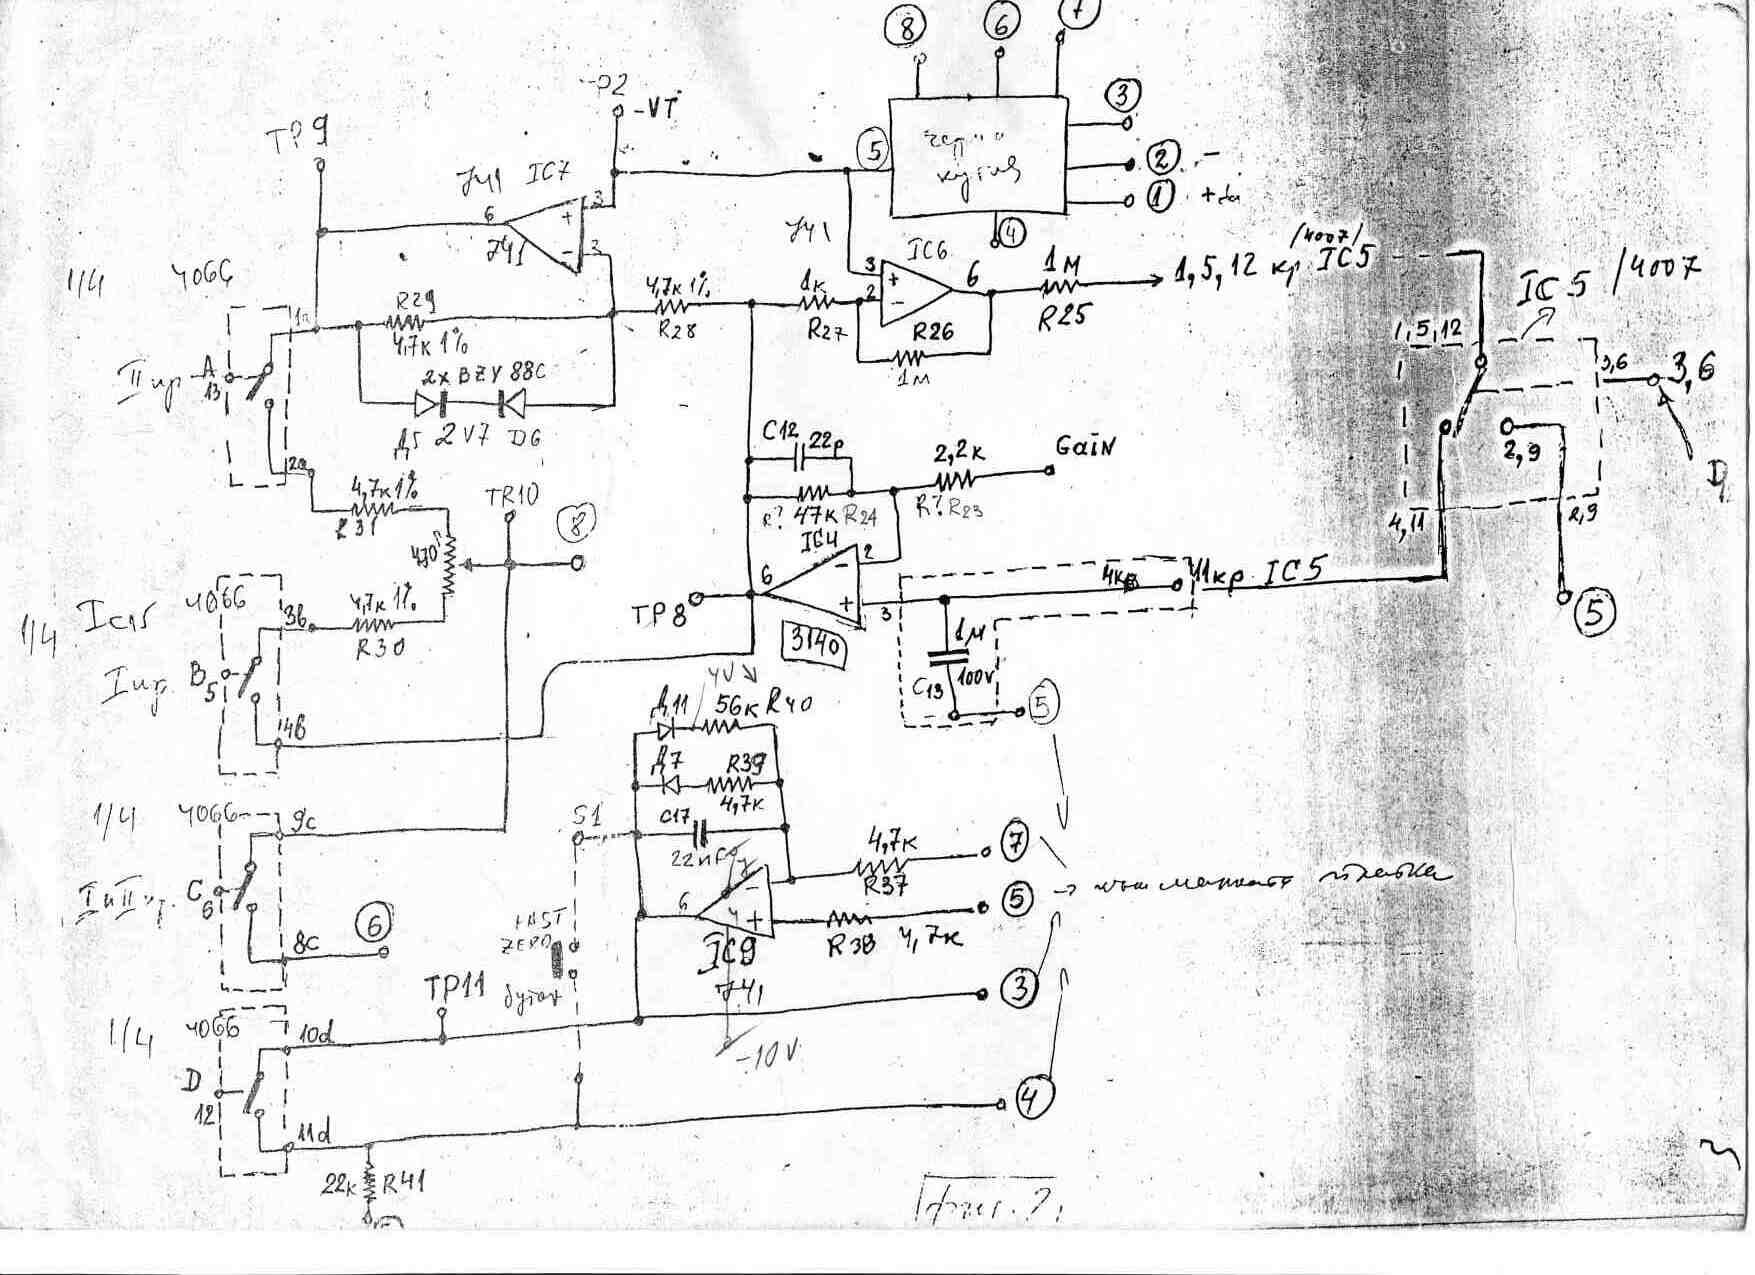 8
6
7
-VT
3
5
2 -
1
4
TP 9
741 IC7
6
741
+
-
3
741
IC6
3
2
+
-
6
1M
R25
1,5,12 кр. IC5
/4007/
IC5 /4007
1,5,12
3,6
3,6
2,9
2,9
4,11
5
1/4 4066
1a
A
13
2a
R29
4,7к 1%
2x BZY 88C
Д5 2V7 D6
4,7к 1%
R28
1к
R27
R26
1M
C12
22p
R? 47к R24
2,2к
R? R23
GaiN
4,7к 1%
R31
TR10
8
470
IC4
2
-
6
+
3
TP8
3140
11кр. IC5
1M
100V
C13
5
1/4
IC15
4066
3в
4,7к 1%
R30
B
5
4в
4V
Д11
56к R40
Д7
R39
4,7к
C17
S1
1/4 4066
9c
C
6
8c
6
4,7к
R37
7
6
-
+
R38 4,7к
5
IC9
741
-10V
FAST
ZERO
бутон
TP11
3
1/4 4066
10d
D
12
11d
4
22к R41
фиг. 2.